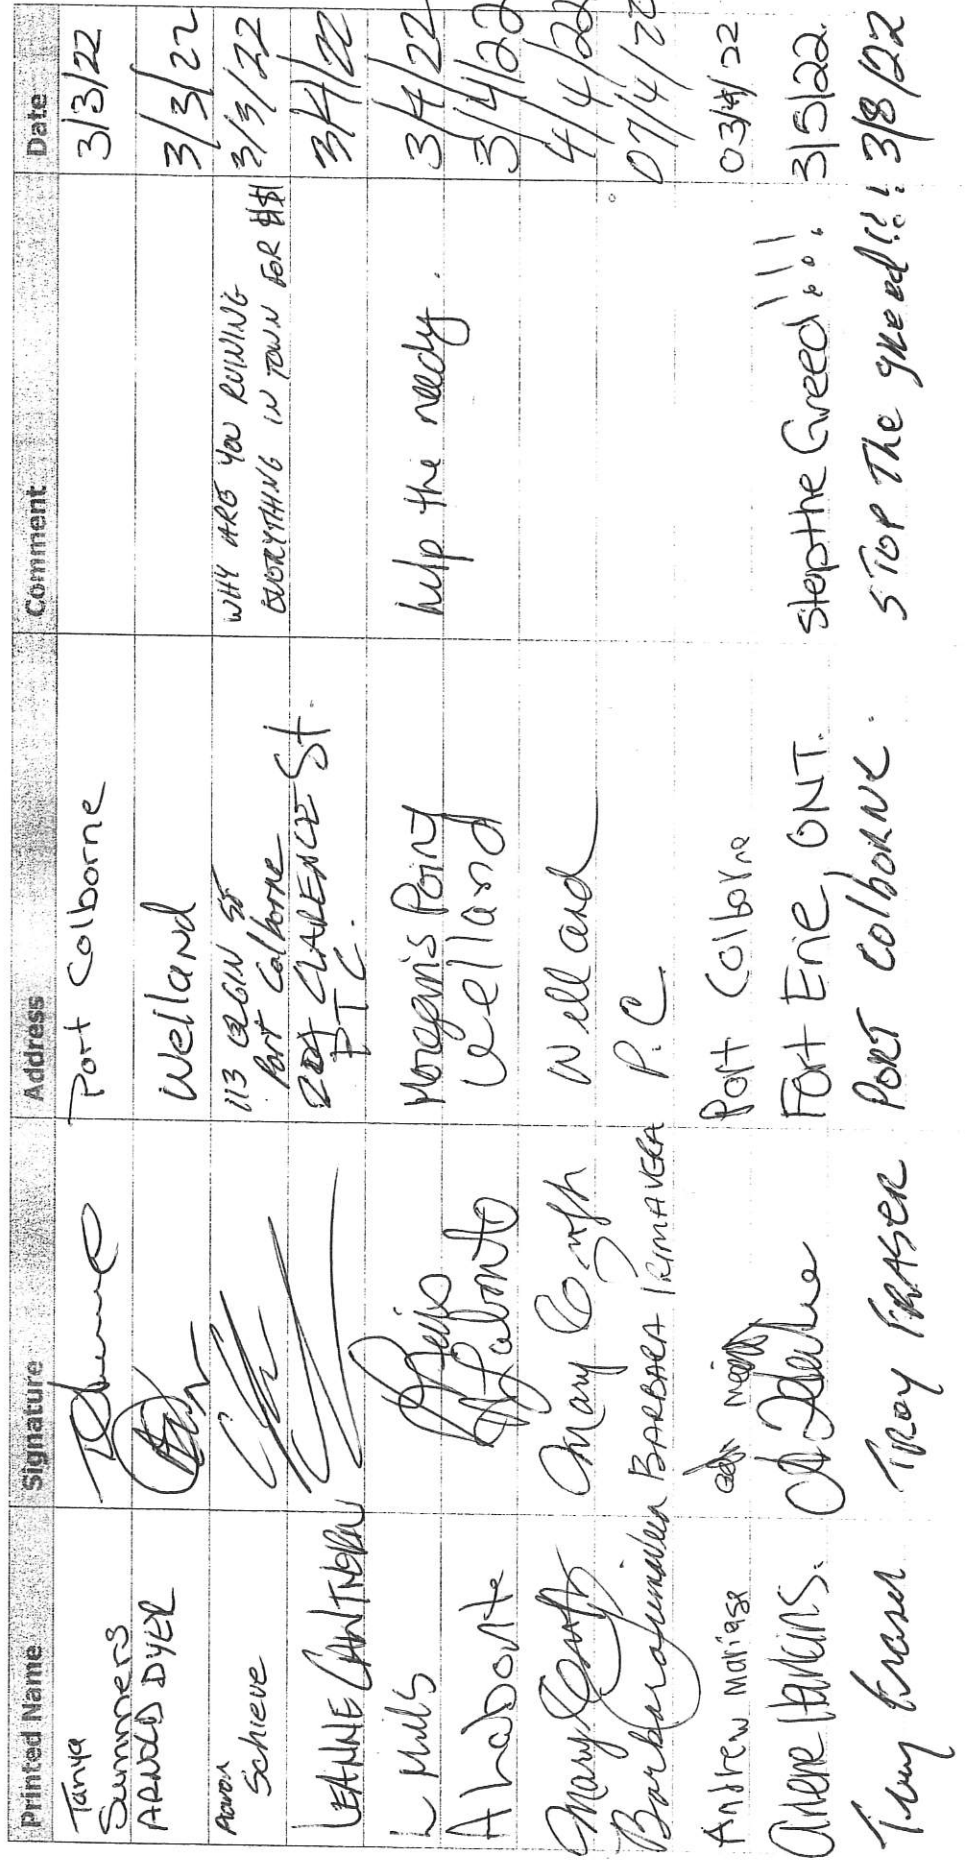 Printed Name Signature Address Comment Date
Tanya
Summers Port Colborne 3/3/22
ARNOLD DYER Welland 3/3/22
Aaron
Schieve 113 ELGIN ST
Port Colborne WHY ARE YOU RUINING
EVERYTHING IN TOWN FOR $$! 3/3/22
LEANNE CLARENCE St.
PT C. 3/4/22
L Mills Morgans Point help the needy. 3/4/22
A LaDonte Welland 3/4/22
Mary Mary Welland 4/4/22
Barbara Primavera BARBARA PRIMAVERA P.C 07/4/22
Andrew Port Colborne 03/4/22
Arlene Harkins. Fort Erie, ONT. Stop the Greed!!!! 3/5/22.
Troy Fraser TROY FRASER PORT COLBORNE. STOP The greed!!!! 3/8/22